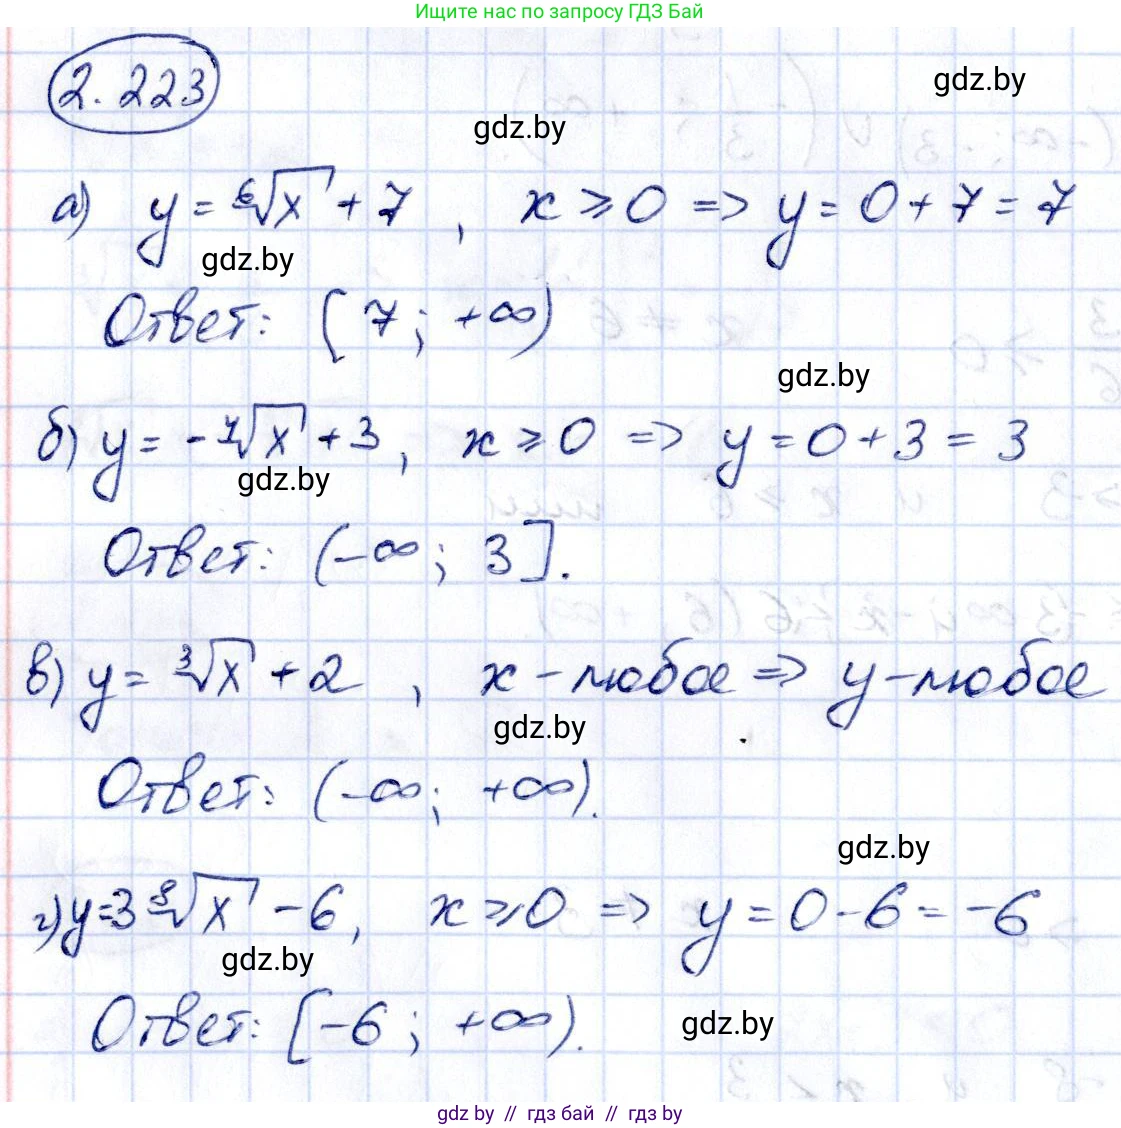 Ищите нас по запросу ГДЗ Бай
2.223
gdz.by
gdz.by
а) y = ⁶√x + 7, x ≥ 0 => y = 0 + 7 = 7
gdz.by
Ответ: [7; +∞)
gdz.by
б) y = - ⁴√x + 3, x ≥ 0 => y = 0 + 3 = 3
gdz.by
Ответ: (-∞; 3].
в) y = ³√x + 2, x - любое => y - любое
gdz.by
Ответ: (-∞; +∞).
gdz.by
г) y = 3 ⁸√x - 6, x ≥ 0 => y = 0 - 6 = -6
gdz.by
Ответ: [-6; +∞).
gdz.by
gdz by // гдз бай // gdz by